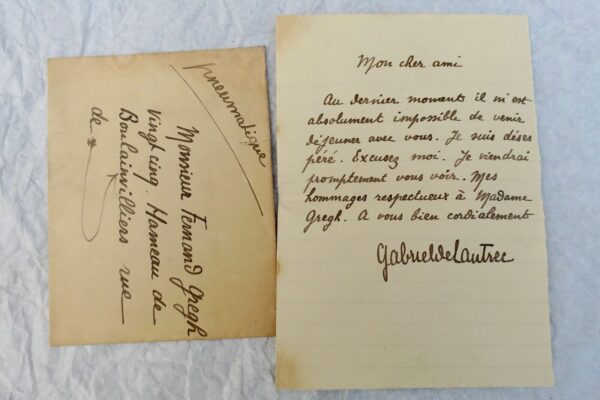 pneumatique
Monsieur Fernand Gregh
Vingt cinq Hameau de
Boulainvilliers rue
de
Mon cher ami
Au dernier moment il m'est
absolument impossible de venir
déjeuner avec vous. Je suis déses
péré. Excusez moi. Je viendrai
promptement vous voir. Mes
hommages respectueux à Madame
Gregh. A vous bien cordialement
Gabriel de Lautrec